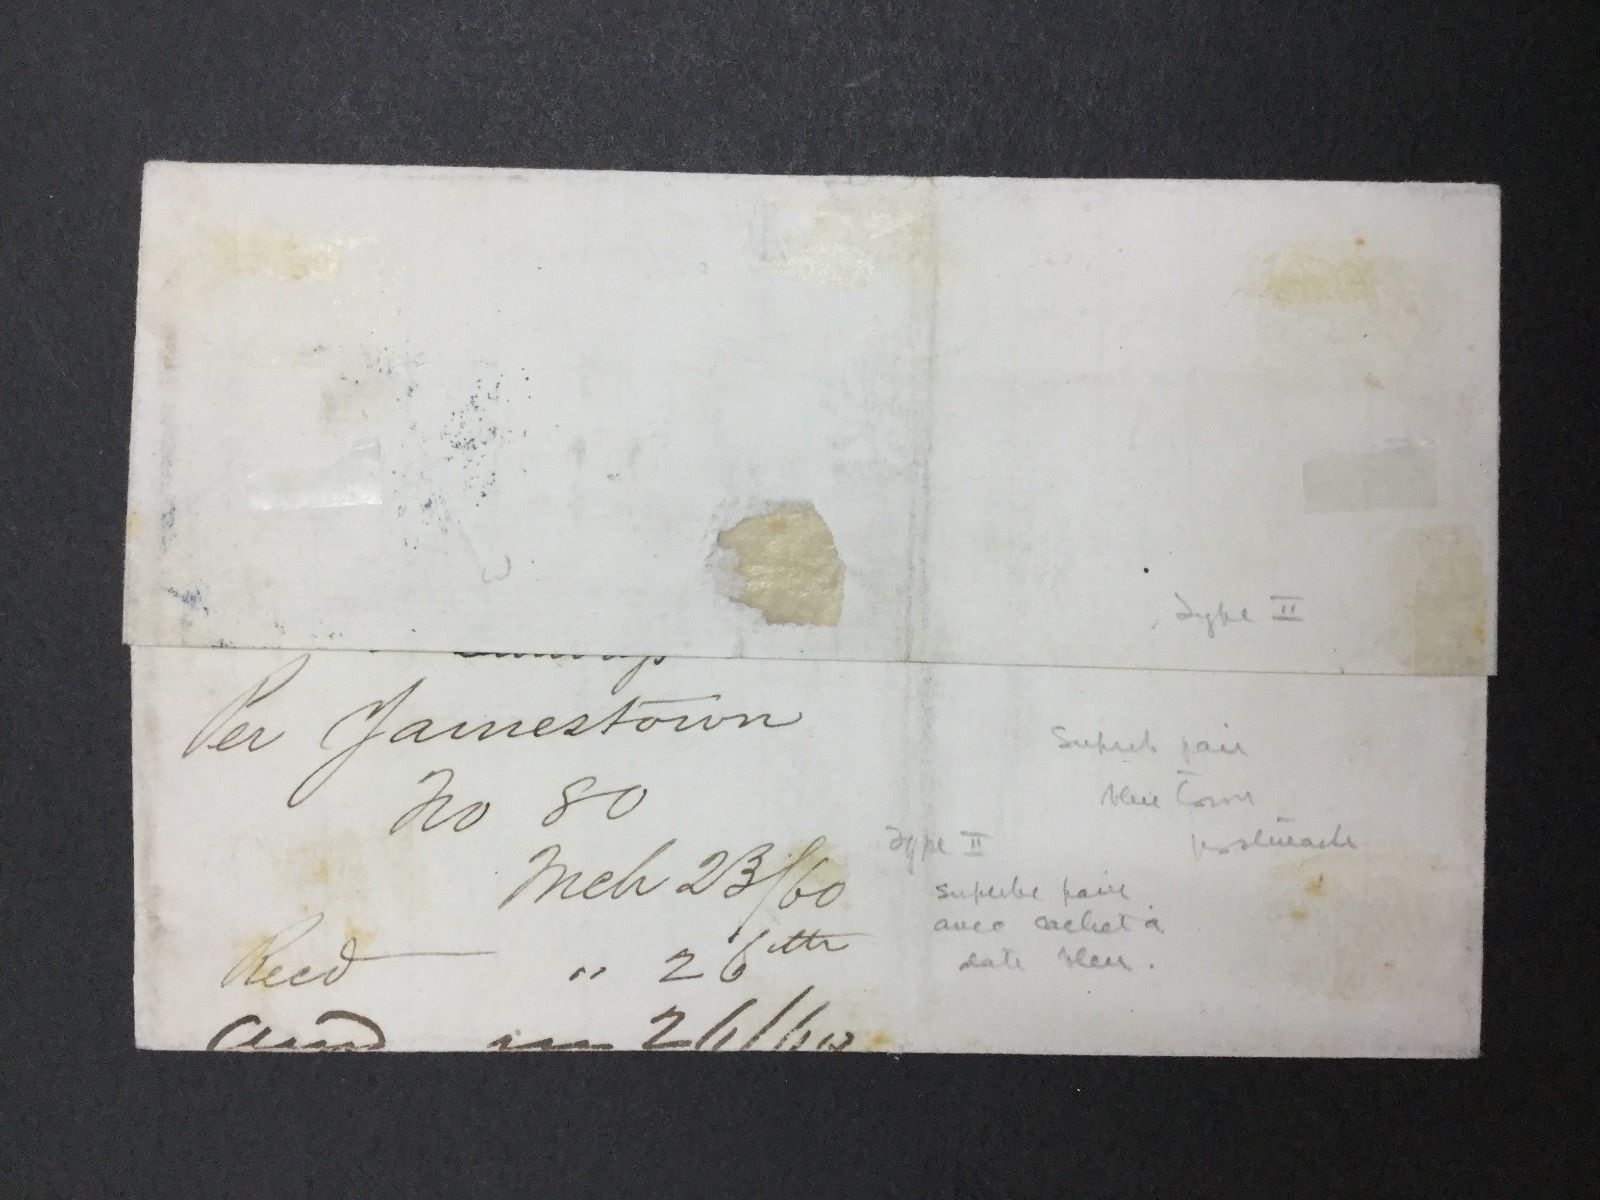 Type II
Per Jamestown
No 80
Mch 23/60
Recd " 26th
26/60
Superb pair
blue town
postmark
Type II
superbe paire
avec cachet à
date bleu.